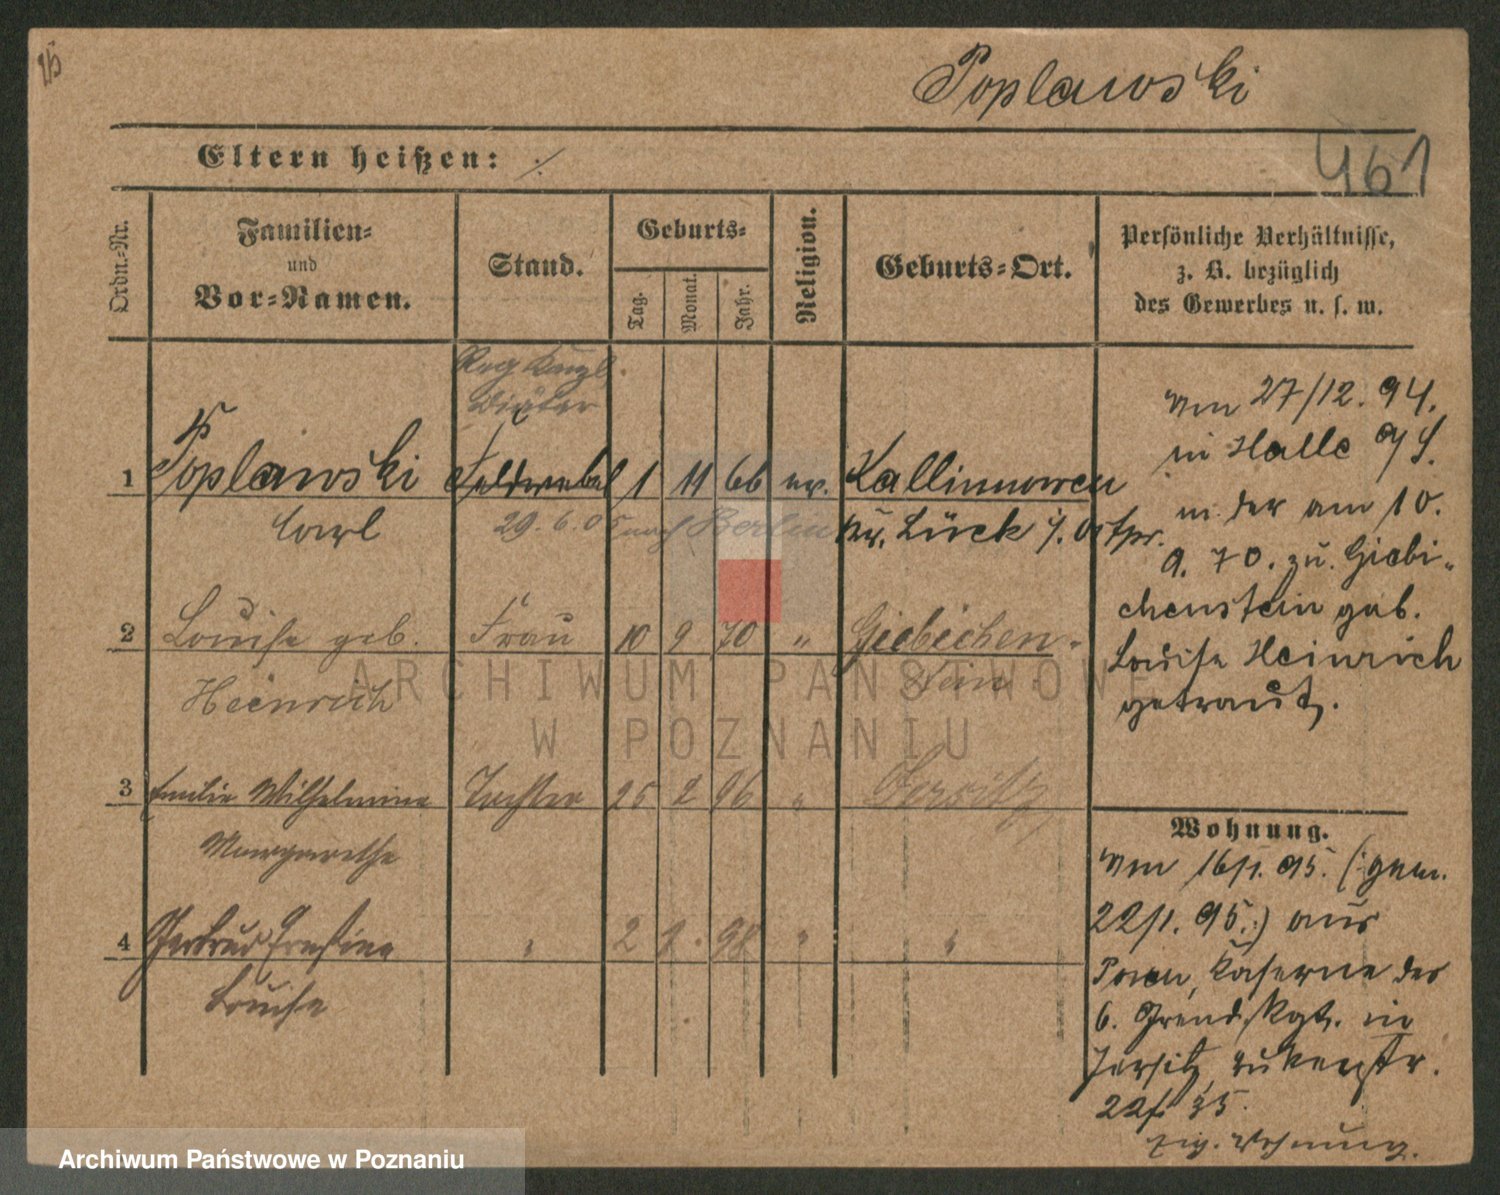 Poplawski
461
Eltern heißen: ./.
Ordn.-Nr.
Familien-
und
Vor-Namen.
Stand.
Geburts-
Tag.
Monat.
Jahr.
Religion.
Geburts-Ort.
Persönliche Verhältnisse,
z. B. bezüglich
des Gewerbes u. s. w.
Reg Kanzl.
Diätar
1 Poplawski Feldwebel 1 11 66 ev. Kallinowen
Carl 29.6.05 nach Berlin Kr. Lück i. Ostpr.
2 Louise geb. Frau 10 9 70 " Giebichen-
Heinrich stein
3 Emilie Wilhelmine Tochter 25 2 96 " Jersitz
Margarethe
4 Gertrud Ernestine " 2 2. 98 " "
Louise
Am 27/12. 94.
in Halle a/S.
m. der am 10.
9. 70. zu Giebi-
chenstein geb.
Louise Heinrich
getraut.
Wohnung.
Am 16/1. 95. (: gem.
22/1. 95 :) aus
Posen, Kaserne des
6. Grend. Rgt. in
Jersitz,
Eig. Wohnung.
ARCHIWUM PAŃSTWOWE
W POZNANIU
Archiwum Państwowe w Poznaniu